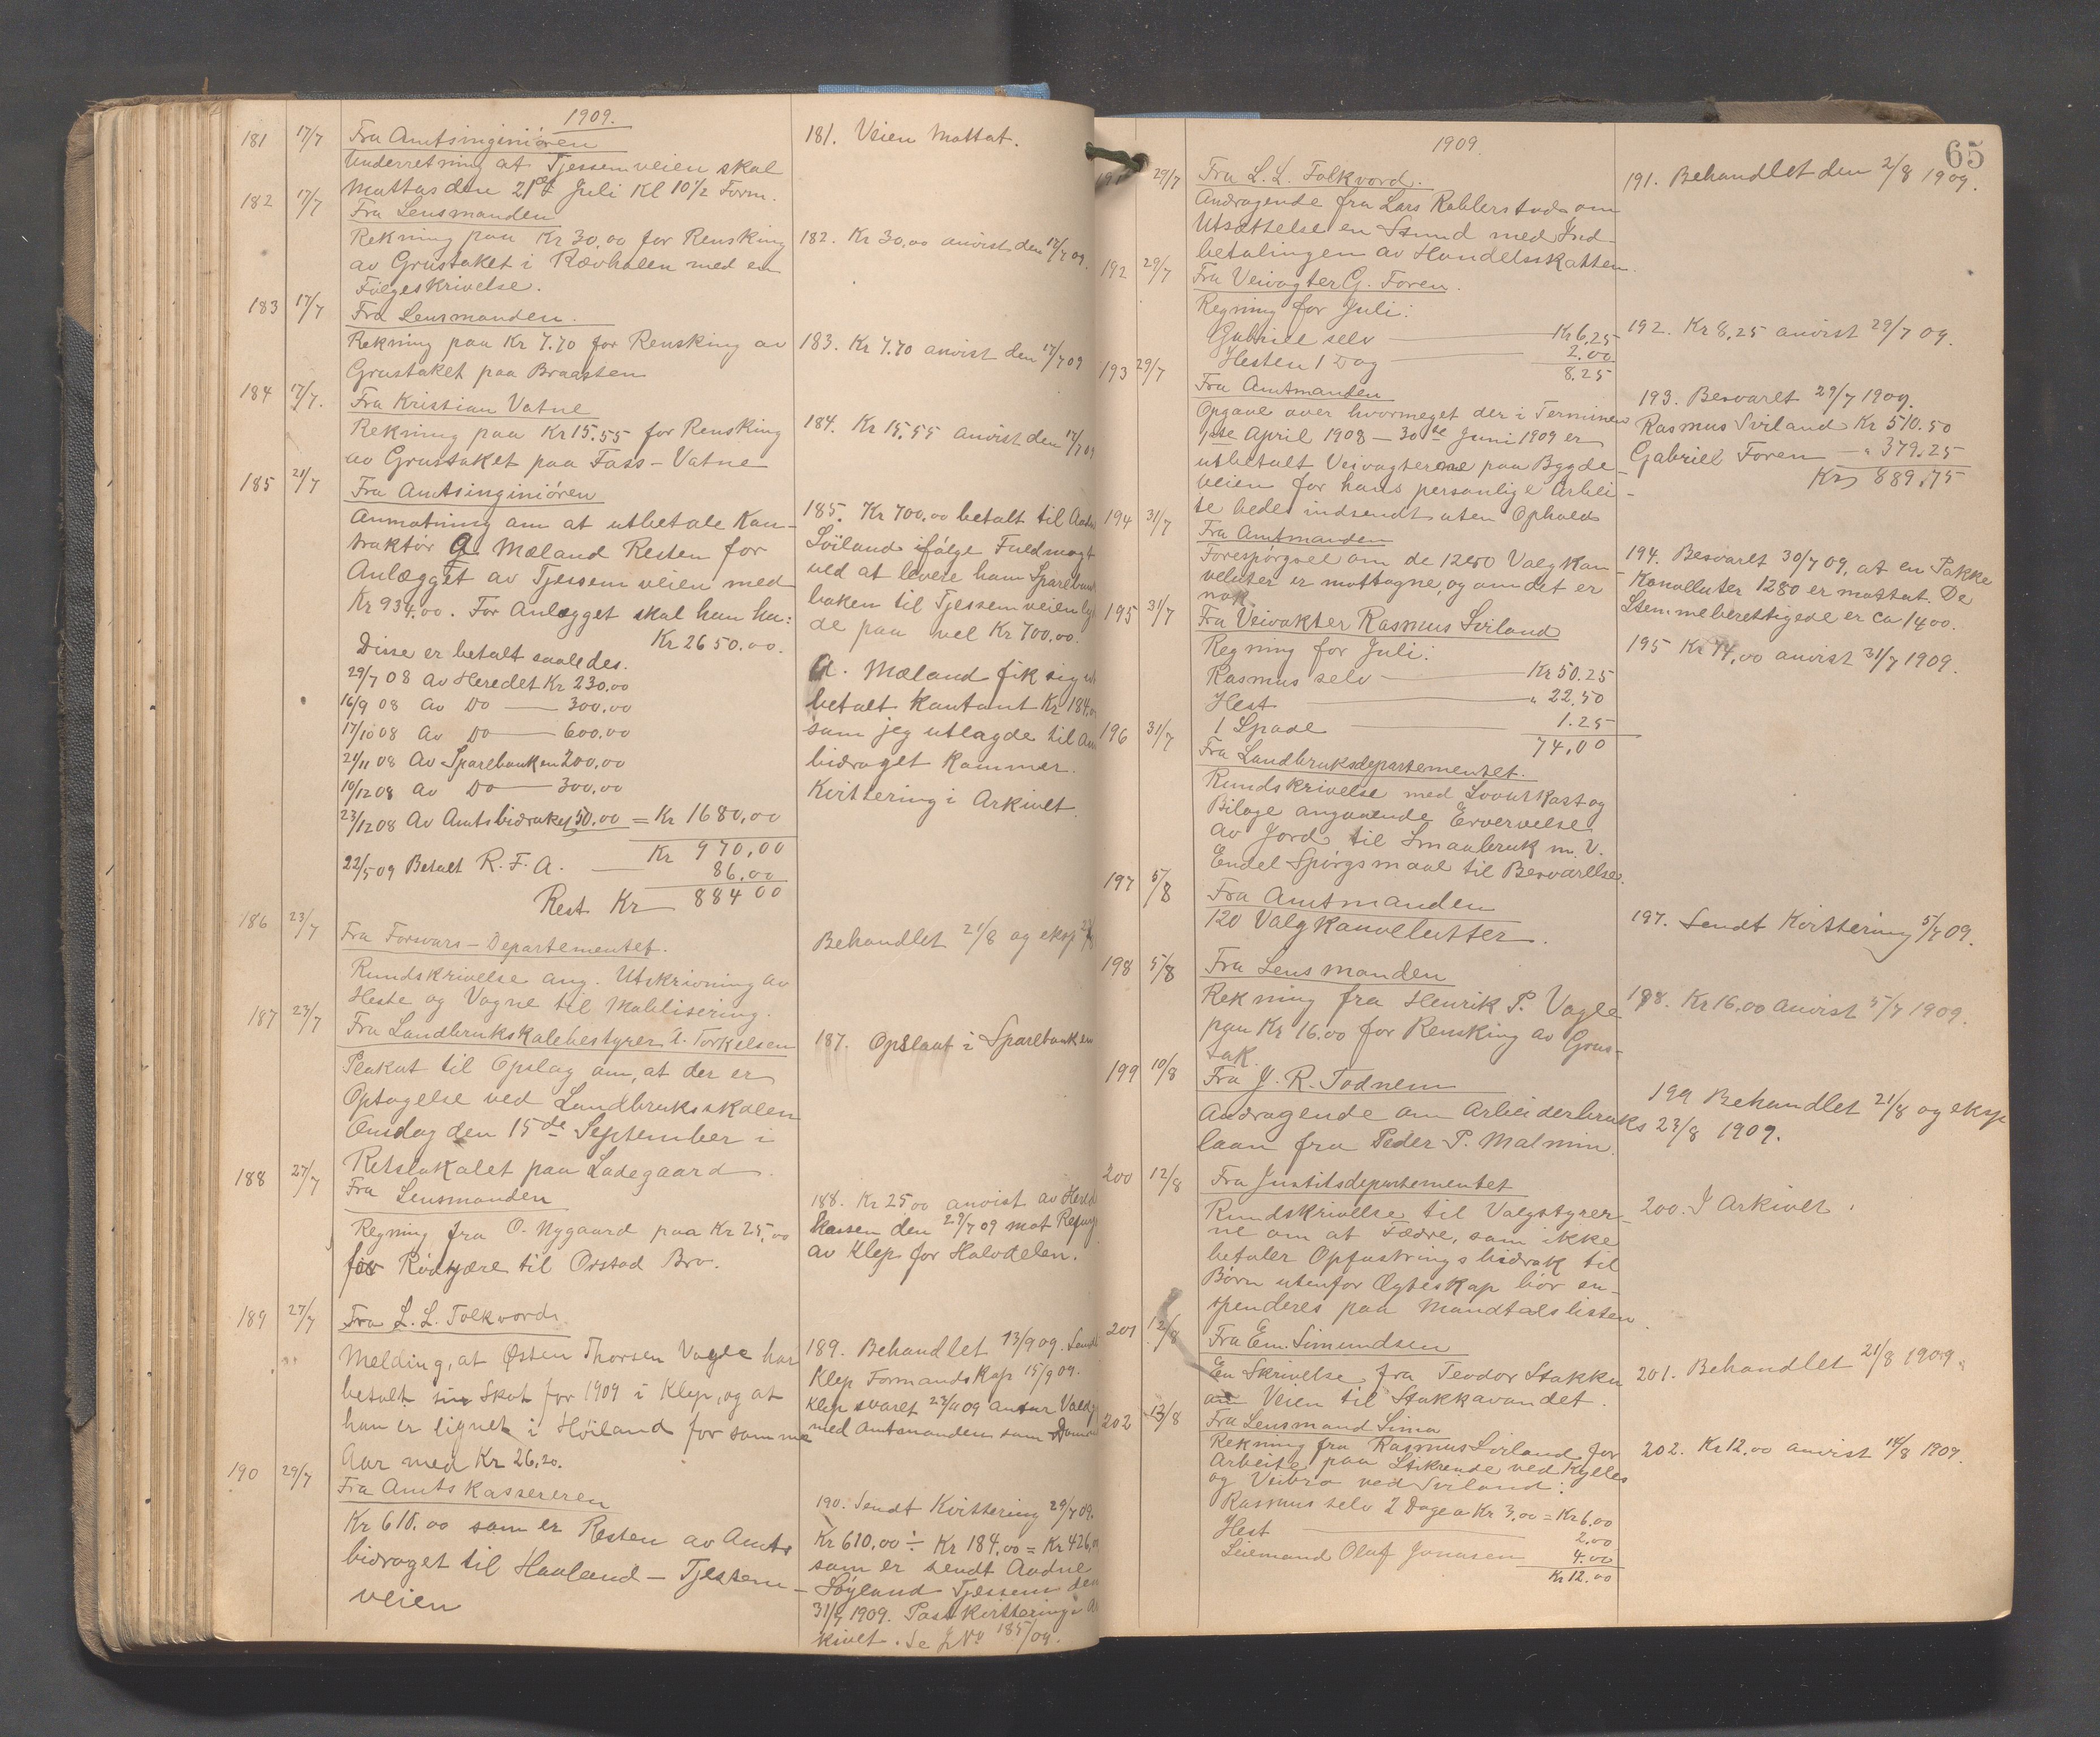 1909.
181 17/7 Fra Amtsingeniören
Underretning at Tjessemveien skal
Mottas den 21de Juli Kl 10 1/2 Form.
181. Veien Mottat.
182 17/7 Fra Lensmanden
Rekning paa Kr 30.00 for Rensking
av Grustaket i Rævholen med en
Fölgeskrivelse.
182. Kr 30,00 anvist den 17/7 09.
183 17/7 Fra Lensmanden.
Rekning paa Kr 7.70 for Rensking av
Grustaket paa Braasten
183. Kr 7.70 anvist den 17/7 09
184 17/7. Fra Kristian Vatne
Rekning paa Kr 15.55 for Rensking
av Grustaket paa Foss-Vatne
184. Kr 15,55 anvist den 17/7 09
185 21/7 Fra Amtsingeniören
Anmotning om at utbetale Kon-
traktör G. Mæland Resten for
Anlægget av Tjessemveien med
Kr 934.00. For Anlægget skal han ha:
Kr 2650.00.
Disse er betalt saaledes.
29/7 08 Av Heredet Kr 230,00
16/9 08 Av Do — 300,00
17/10 08 Av Do — 600.00
21/11 08 Av Sparebanken 200,00
10/12 08 Av Do — 300.00
23/12 08 Av Amtsbidraket 50.00 = Kr 1680,00
Kr 970,00
22/5 09 Betalt R.F.A. — 86.00
Rest Kr 884 00
185. Kr 700,00 betalt til
Söiland ifölge Fuldmagt
ved at levere ham
boken til Tjessemveien
de paa vel Kr 700.00.
G. Mæland fik sig
betalt kontant Kr 184,
som jeg utlagde til
bidraget kommer.
Kvittering i Arkivet.
186 23/7 Fra Forsvars-Departementet.
Rundskrivelse ang. Utskrivning av
Heste og Vogne til Mobilisering.
Behandlet 21/8 og eksp
187 23/7 Fra Landbrukskolebestyrer Torkelsen
Plakat til Opslag om, at der er
Optagelse ved Landbruksskolen
Onsdag den 15de September i
Retslokalet paa Ladegaard.
187. Opslaat i Sparebanken
188 27/7 Fra Lensmanden
Regning fra O. Nygaard paa Kr 25,00
for Rödtjære til Orstad Bro.
188. Kr 25 00 anvist av
kassen den 29/7 09 mot
av Klep for Halvdelen.
189 27/7 Fra L. L. Folkvord.
Melding, at Østen Thorsen Vagle har
betalt sin Skat for 1909 i Klep, og at
han er lignet i Höiland for samme
Aar med Kr 26,20.
189. Behandlet 13/9 09.
Klep Formandskap 15/9 09.
Klep svaret
med Amtmanden som
190 29/7 Fra Amtskassereren
Kr 610.00 som er Resten av Amts
bidraget til Haaland-Tjessem-
veien
190. Sendt Kvittering 29/7 09.
Kr 610,00 ÷ Kr 184,00 = Kr 426,
som er sendt
Söyland Tjessem den
31/7 1909. Postkvittering i
kivet. Se J No 185/09.
65
1909.
29/7 Fra L. L. Folkvord.
Andragende fra Lars om
Utsættelse en Stund med Ind-
betalingen av Handelsskatten.
191. Behandlet den 2/8 1909.
192 29/7 Fra Veivogter G. Foren.
Regning for Juli:
Gabriel selv — Kr 6.25
Hesten 1 Dag — 2.00
8.25
192. Kr 8,25 anvist 29/7 09.
193 29/7 Fra Amtmanden
Opgave over hvormeget der i Terminen
1ste April 1908 - 30te Juni 1909 er
utbetalt Veivogterne paa Bygde-
veien for hans personlige Arbei-
te bedes indsendt uten Ophold
193. Besvaret 29/7 1909.
Rasmus Sviland Kr 510.50
Gabriel Foren — " 379.25
Kr 889.75
194 31/7 Fra Amtmanden
Forespörgsel om de 1280 Valgkon-
voluter er mottagne, og om det er
nok.
194. Besvaret 30/7 09, at en Pakke
Konvolluter 1280 er mottat. De
Stemmeberettigede er ca 1400.
195 31/7 Fra Veivakter Rasmus Sviland
Regning for Juli:
Rasmus selv — Kr 50.25
Hest — " 22,50
1 Spade — 1.25
74,00
195 Kr 74,00 anvist 31/7 1909.
196 31/7 Fra Landbruksdepartementet.
Rundskrivelse med Lovutkast og
Bilage angaaende Ervervelse
av Jord til Smaabruk m. v.
Endel Spörgsmaal til Besvarelse.
197 5/8 Fra Amtmanden
120 Valgkonvolutter.
197. Sendt Kvittering 5/7 09.
198 5/8 Fra Lensmanden
Rekning fra Henrik P. Vagle
paa Kr 16.00 for Rensking av Grus-
tak.
198. Kr 16,00 anvist 5/7 1909.
199 10/8 Fra J. R. Todnem
Andragende om Arbeiderbruks
laan fra Peder P. Malmin.
199 Behandlet 21/8 og eksp
23/8 1909.
200 12/8 Fra Justitsdepartementet
Rundskrivelse til Valgstyrer-
ne om at Fædre, som ikke
betaler Opfostringsbidrak til
Børn utenfor Ægteskap bör su-
spenderes paa Mandtalslisten.
200. I Arkivet.
201 12/8 Fra Em. Simundsen
En Skrivelse fra Teodor Stokka
om Veien til Stokkavandet.
201. Behandlet 21/8 1909.
202 13/8 Fra Lensmand Sima
Rekning fra Rasmus Sviland for
Arbeite paa Stikrende ved Kylles
og Veibro ved Sviland:
Rasmus selv 2 Dage a Kr 3,00 = Kr 6,00
Hest — 2,00
Leiemand Olaf Jonasen 4.00
Kr 12.00
202. Kr 12,00 anvist 14/8 1909.